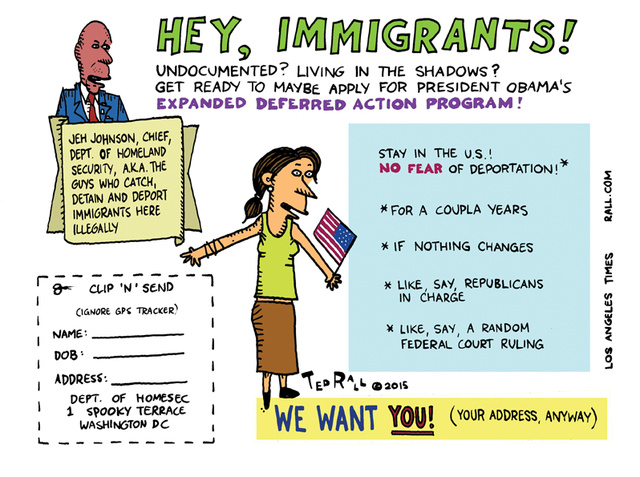 HEY, IMMIGRANTS!
UNDOCUMENTED? LIVING IN THE SHADOWS?
GET READY TO MAYBE APPLY FOR PRESIDENT OBAMA'S
EXPANDED DEFERRED ACTION PROGRAM!
JEH JOHNSON, CHIEF,
DEPT. OF HOMELAND
SECURITY, A.K.A. THE
GUYS WHO CATCH,
DETAIN AND DEPORT
IMMIGRANTS HERE
ILLEGALLY
STAY IN THE U.S.!
NO FEAR OF DEPORTATION!*
* FOR A COUPLA YEARS
* IF NOTHING CHANGES
* LIKE, SAY, REPUBLICANS
IN CHARGE
* LIKE, SAY, A RANDOM
FEDERAL COURT RULING
CLIP 'N' SEND
(IGNORE GPS TRACKER)
NAME:
DOB:
ADDRESS:
DEPT. OF HOMESEC
1 SPOOKY TERRACE
WASHINGTON DC
TED RALL © 2015
WE WANT YOU! (YOUR ADDRESS, ANYWAY)
LOS ANGELES TIMES RALL.COM